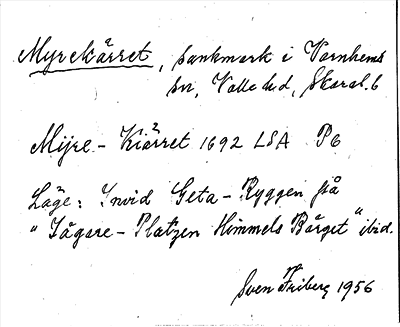 Myrekärret, sankmark i Varnhems
sn, Valle hd, Skarab. l
Mijre - Kiärret 1692 LSA P6
Läge: Invid Geta - Ryggen på
"Jägare - Platzen Himmels Bärget" ibid.
Sven Friberg 1956